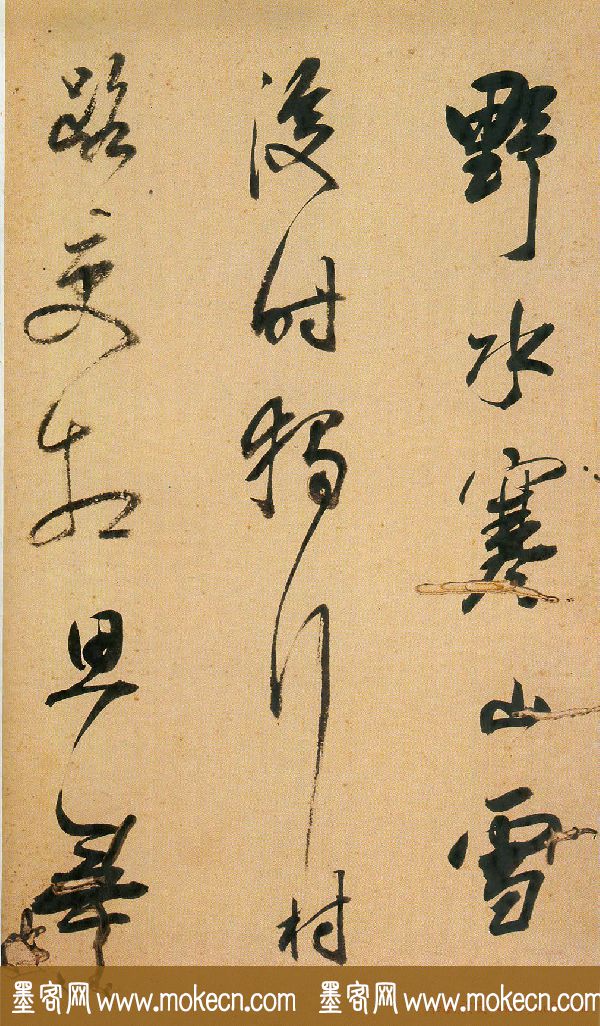 野水寒山雪
後時獨行村
路更相思無
墨客网 www.mokecn.com 墨客网 www.mokecn.com